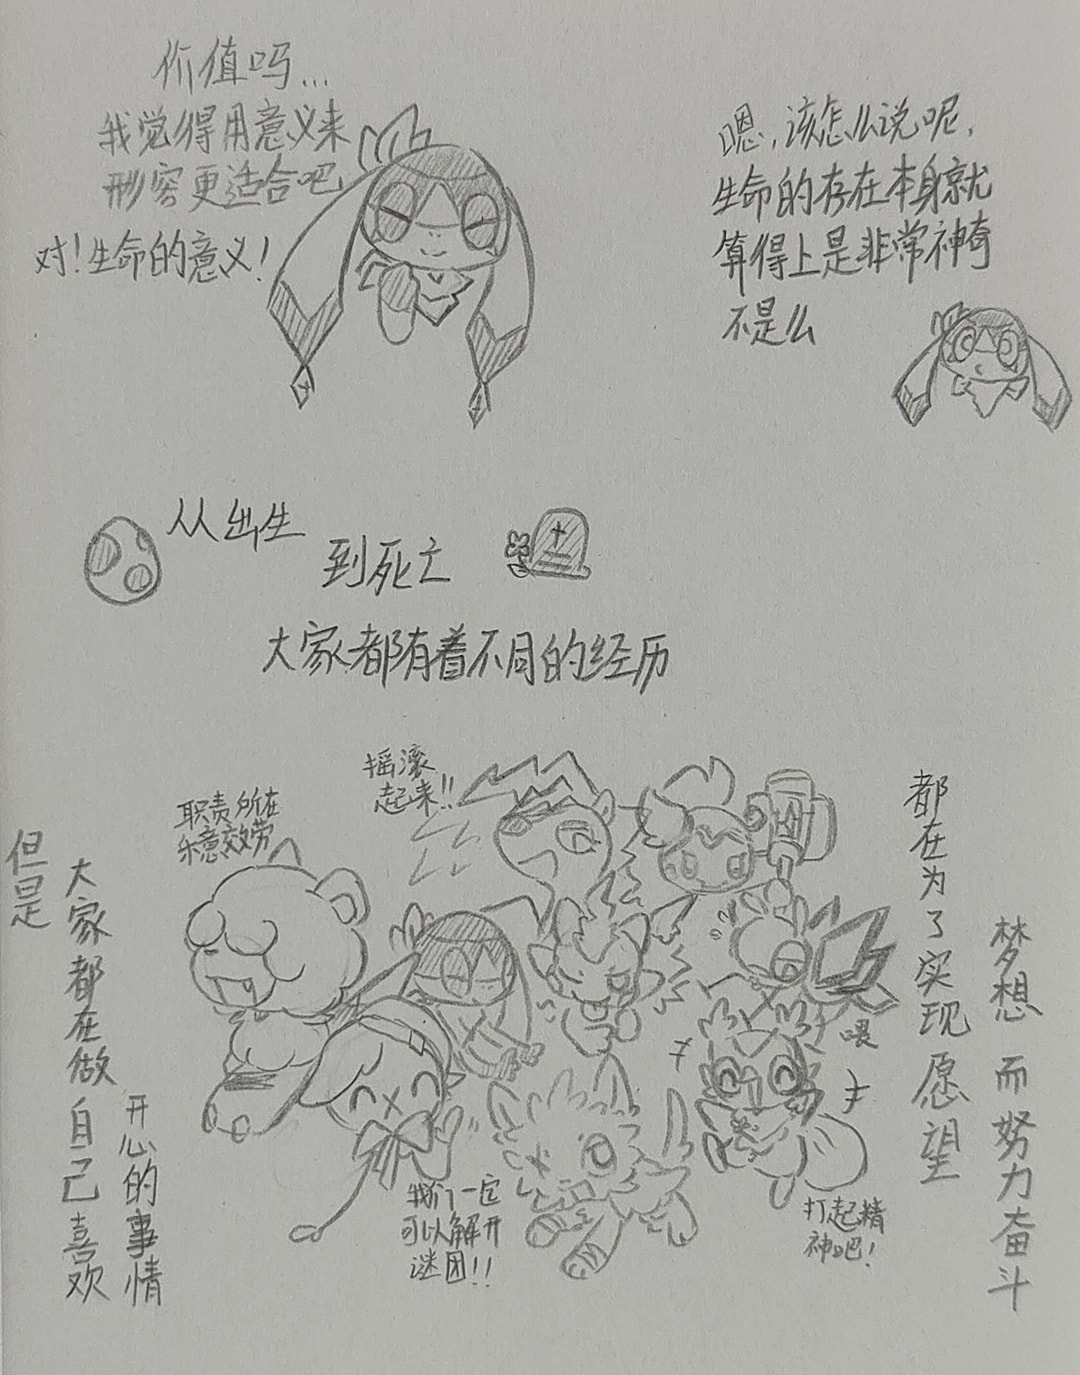 价值吗…
我觉得用意义来
形容更适合吧
对！生命的意义！
嗯，该怎么说呢，
生命的存在本身就
算得上是非常神奇
不是么
从出生
到死亡
大家都有着不同的经历
但是
大家都在做自己喜欢
开心的事情
职责所在
乐意效劳
摇滚
起来！！
喂
我们一定
可以解开
谜团！！
打起精
神吧！
都在为了实现愿望
梦想而努力奋斗